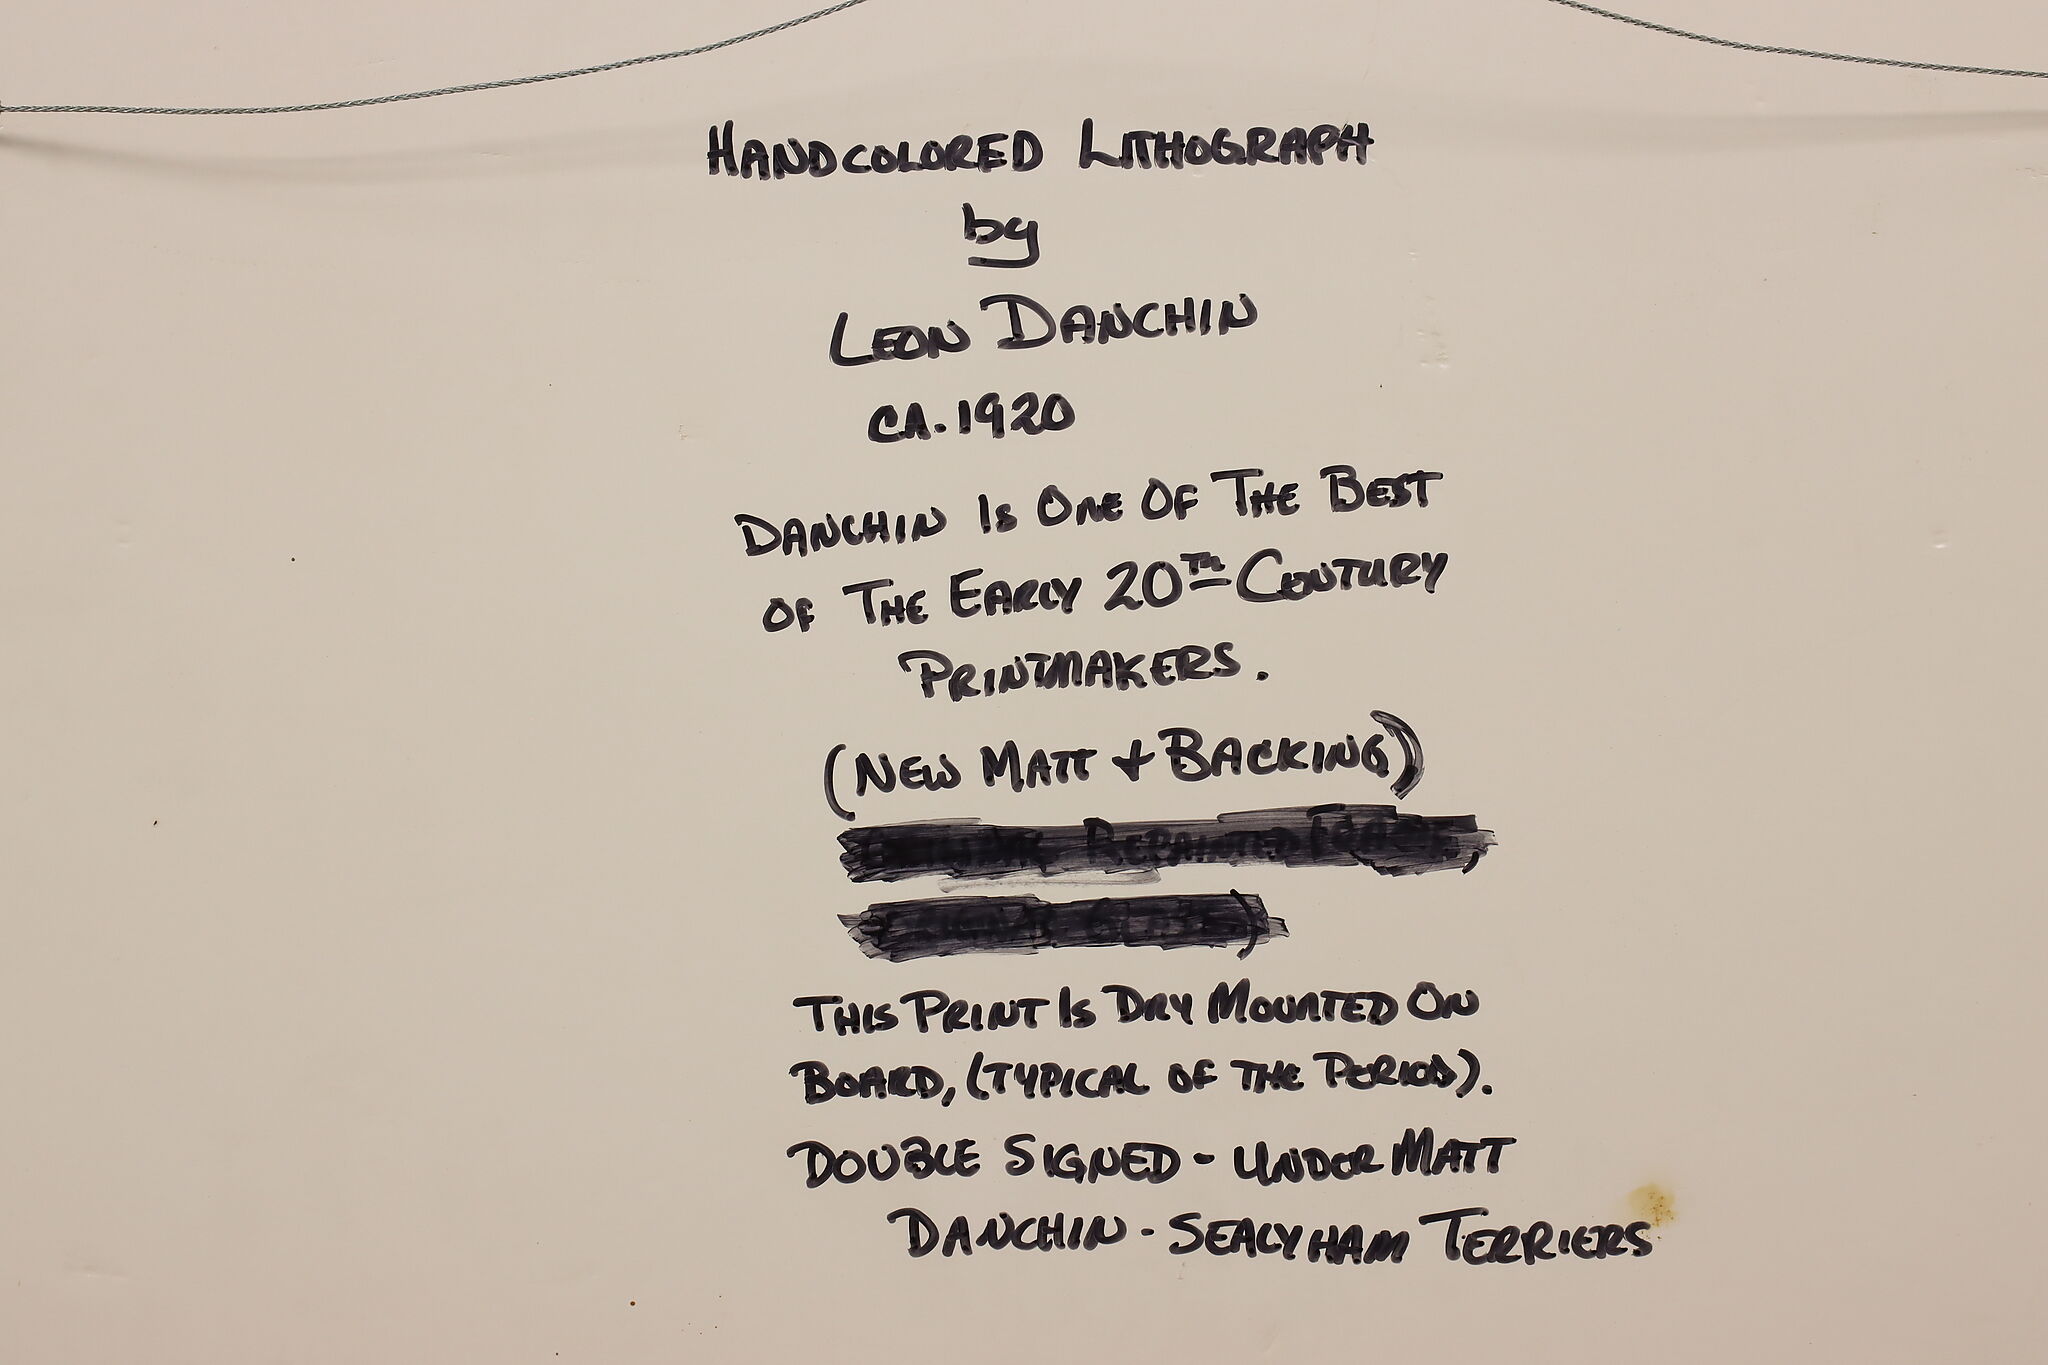 HANDCOLORED LITHOGRAPH
by
LEON DANCHIN
CA. 1920
DANCHIN IS ONE OF THE BEST
OF THE EARLY 20TH CENTURY
PRINTMAKERS.
(NEW MATT + BACKING)
REPAINTED
THIS PRINT IS DRY MOUNTED ON
BOARD, (TYPICAL OF THE PERIOD).
DOUBLE SIGNED - UNDER MATT
DANCHIN - SEALYHAM TERRIERS